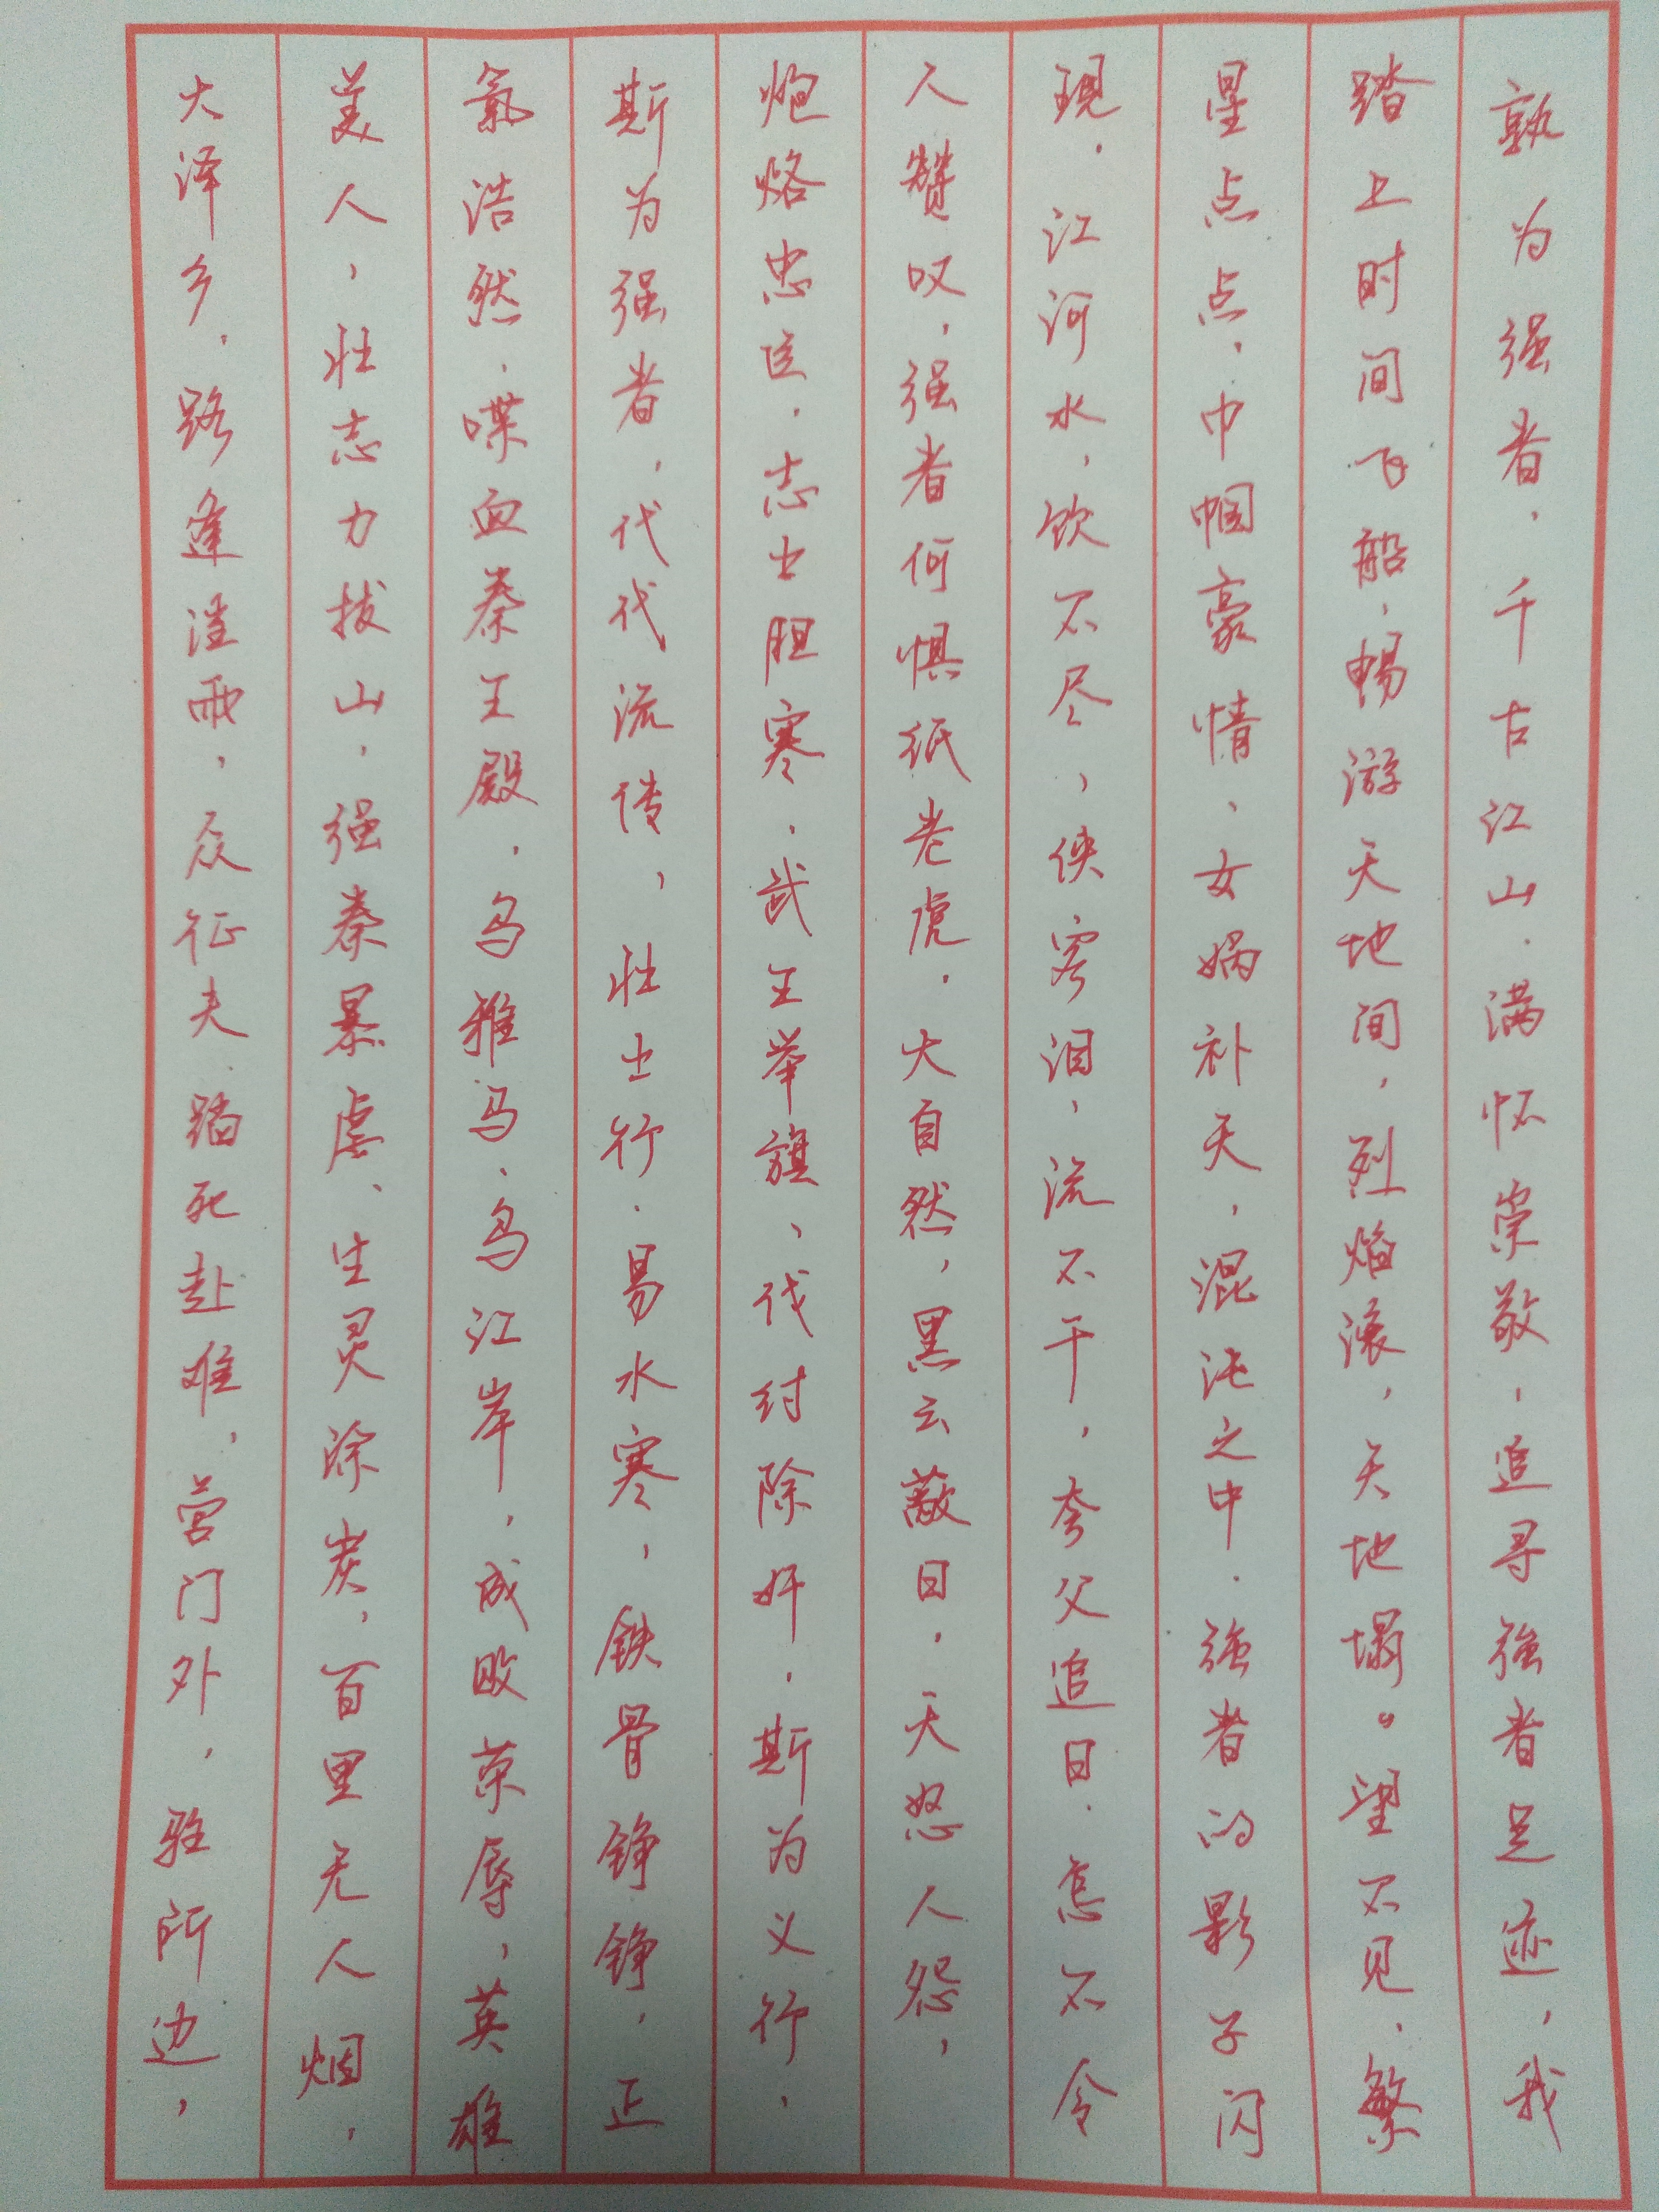 孰为强者，千古江山，满怀崇敬，追寻强者足迹，我
踏上时间飞船，畅游天地间，烈焰滚，天地塌。望不见，繁
星点点，巾帼豪情，女娲补天，混沌之中，强者的影子闪
现，江河水，饮不尽，侠客泪，流不干，夸父追日，怎不令
人赞叹，强者何惧纸老虎，大自然，黑云蔽日，天怒人怨，
炮烙忠臣，志士胆寒，武王举旗，伐纣除奸，斯为义行，
斯为强者，代代流传，壮士行，易水寒，铁骨铮铮，正
氣浩然，喋血秦王殿，乌雅马，乌江岸，成败荣辱，英雄
美人，壮志力拔山，强秦暴虐，生灵涂炭，百里无人烟，
大泽乡，路逢淫雨，众征夫，踏死赴难，营门外，驻所边，